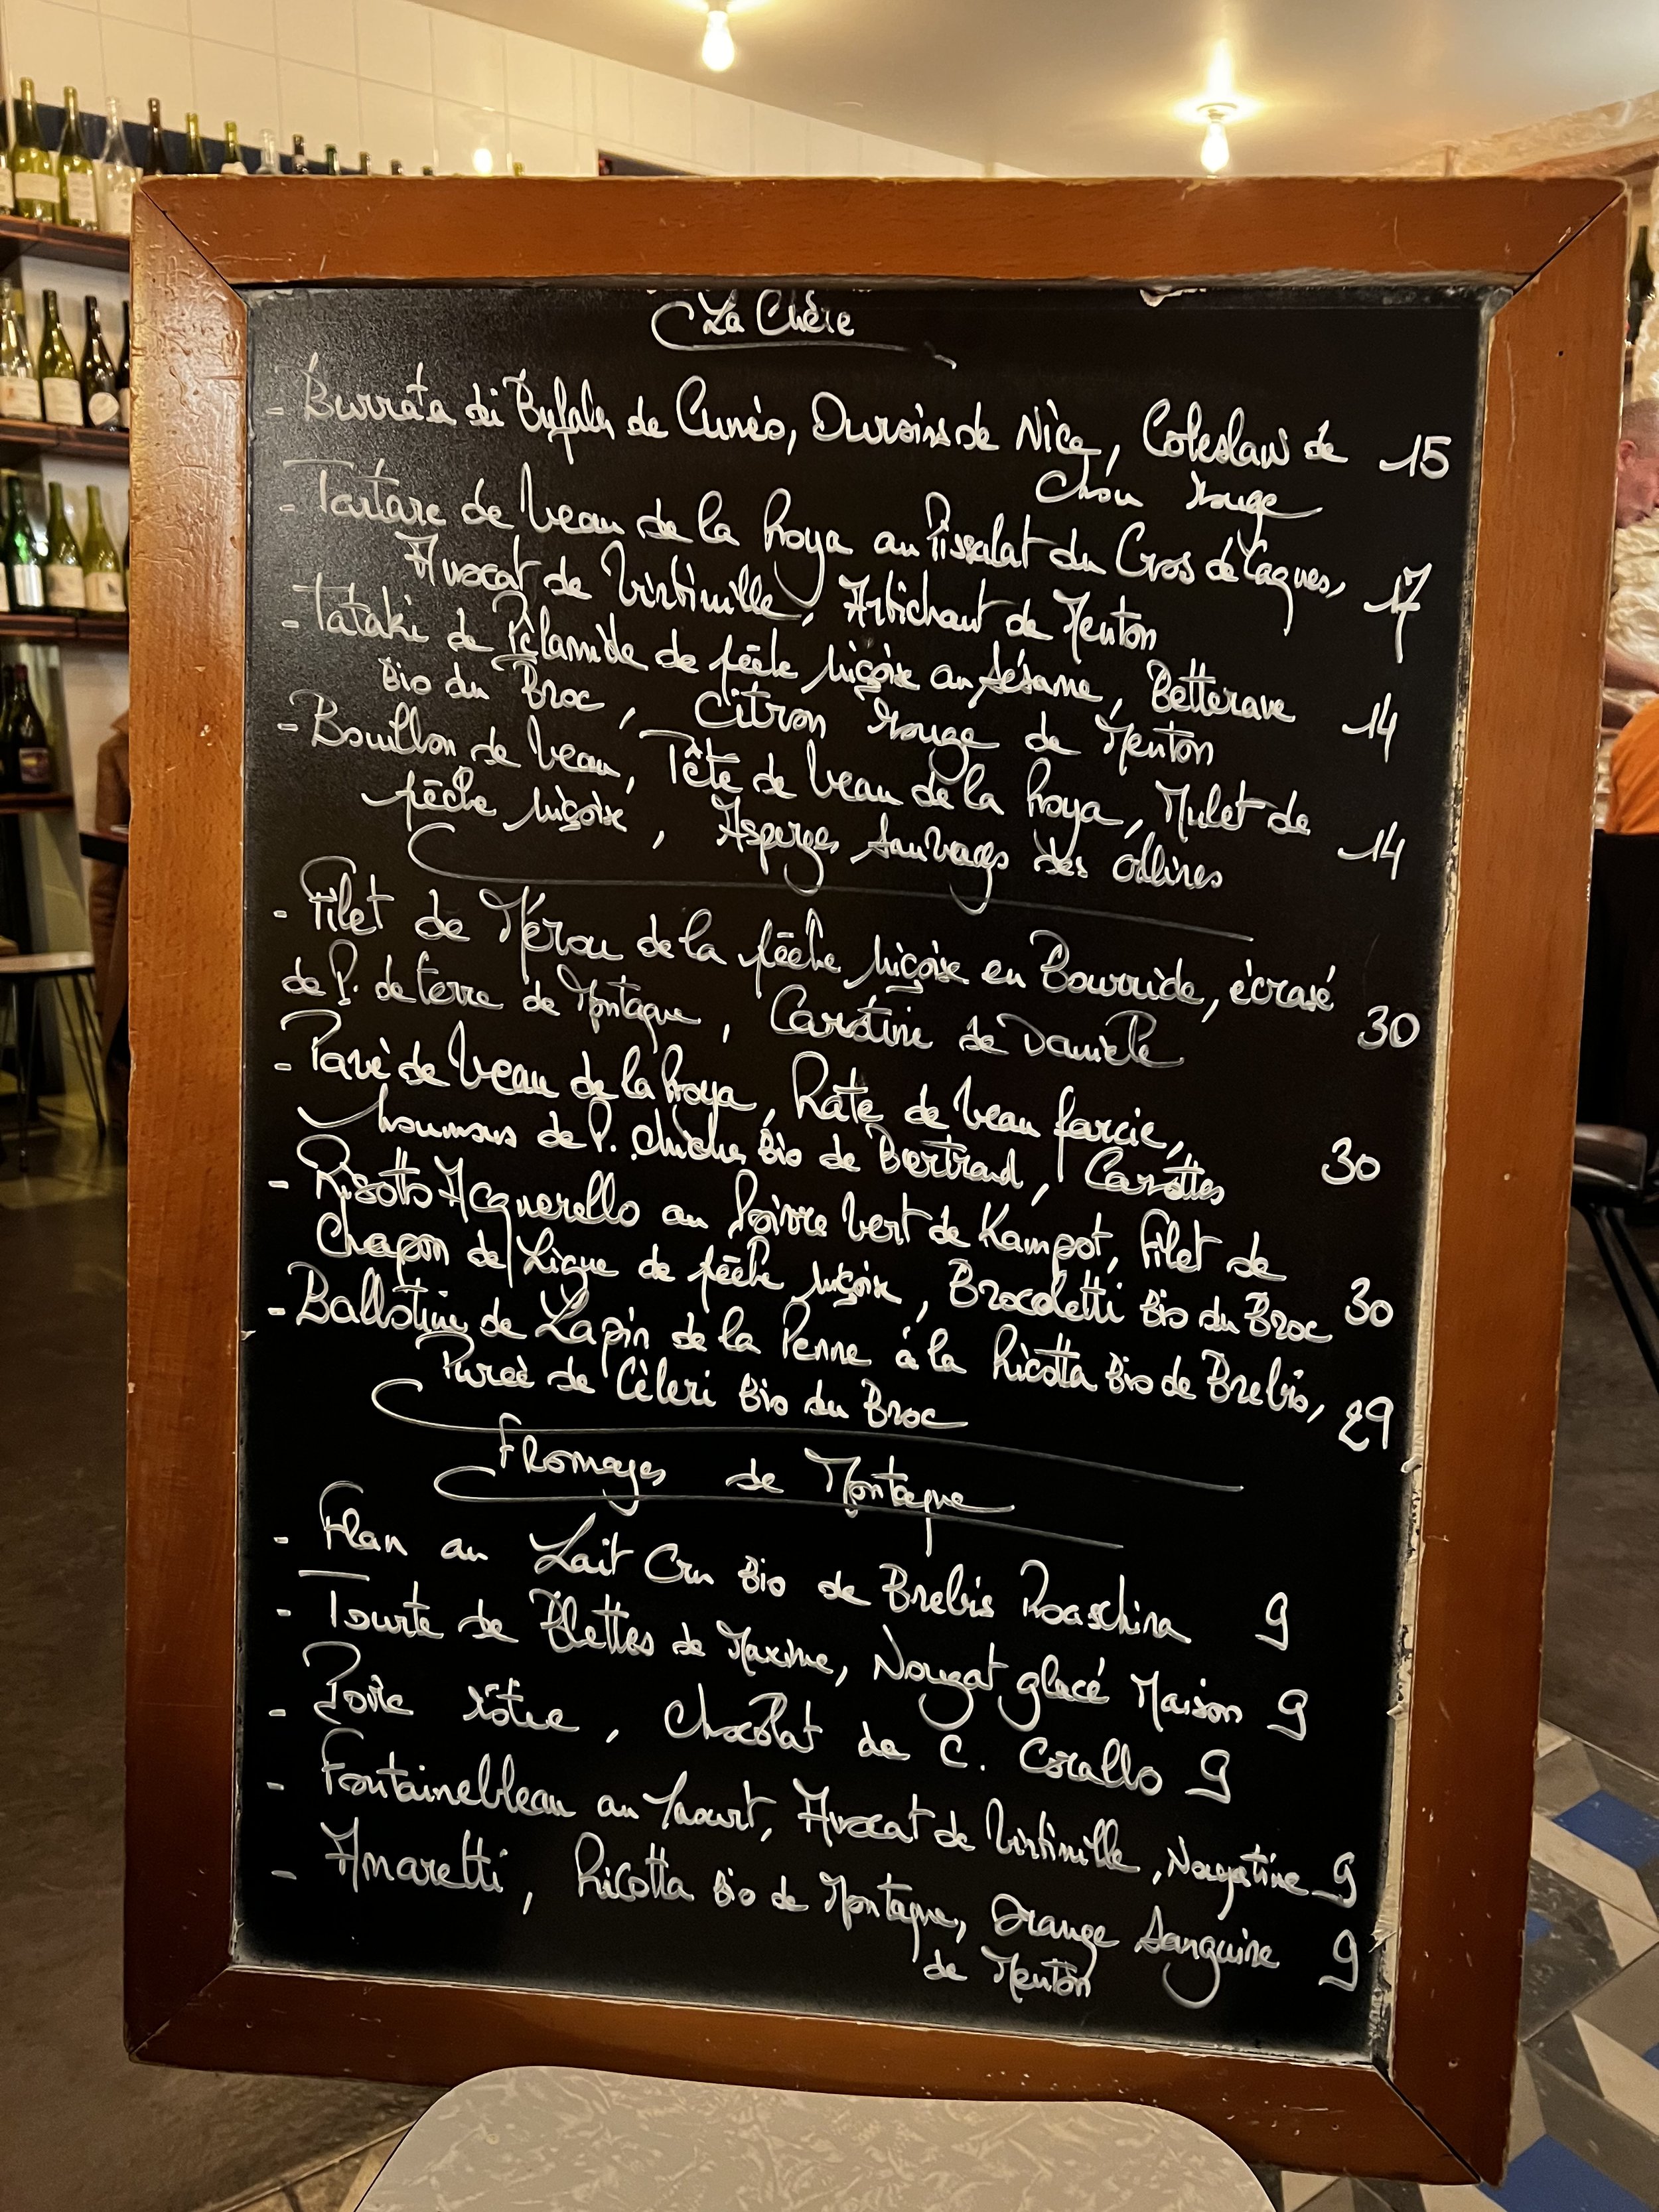 La Chère
- Burrata di Bufala de Cunéo, Oursins de Nice, Coleslaw de 15
Chou rouge
- Tartare de Veau de la Roya au Pissalat du Cros de Cagnes, 17
Avocat de Vintimille, Artichaut de Menton
- Tataki de Pélamide de pêche niçoise au sésame, Betterave
Bio du Broc, Citron rouge de Menton 14
- Bouillon de Veau, Tête de Veau de la Roya, Mulet de
pêche niçoise, Asperges sauvages des collines 14
- Filet de Mérou de la pêche niçoise en Bourride, écrasé
de P. de terre de Montagne, Carotine de Danièle 30
- Pavé de Veau de la Roya, Rate de Veau farcie,
houmous de P. chiche Bio de Bertrand, Carottes 30
- Risotto Acquerello au Poivre Vert de Kampot, Filet de
Chapon de Ligne de pêche niçoise, Brocoletti Bio du Broc 30
- Ballotine de Lapin de la Penne à la Ricotta Bio de Brebis,
Purée de Céleri Bio du Broc 29
Fromages de Montagne
- Flan au Lait Cru Bio de Brebis Roaschina 9
- Tourte de Blettes de Maxime, Nougat glacé Maison 9
- Poire rôtie, Chocolat de C. Corallo 9
- Fontainebleau au Yaourt, Avocat de Vintimille, Nougatine 9
- Amaretti, Ricotta Bio de Montagne, Orange Sanguine 9
de Menton